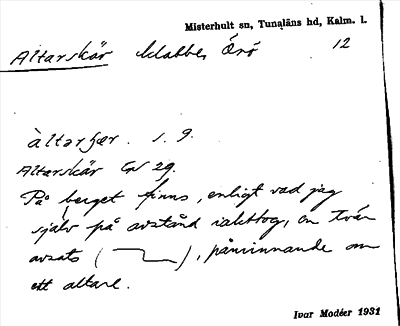 Misterhult sn, Tunaläns hd, Kalm. l.
Altarskär klabbe, Örö 12
àltərʃær. s. 9.
Altarskär GS 29.
På berget finns, enligt vad jag
själv på avstånd iakttog, en tvär
avsats ( ), påminnande om
ett altare.
Ivar Modéer 1931